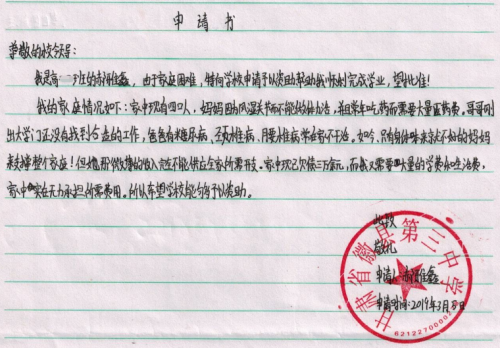 申请书
尊敬的校领导：
我是高一 班的 ，由于家庭困难，特向学校申请予以资助帮助我顺利完成学业，望批准！
我的家庭情况如下：家中现有四口人，妈妈因为风湿关节而不能做体力活，并且常年吃药而需要大量医药费。哥哥刚
出大学门还没有找到合适的工作，爸爸有糖尿病、颈椎病、腰椎病常年不干活。如今，只有身体本来就不好的妈妈
来支撑整个家庭！但她那微薄的收入完全不能供应全家所需开支。家中现已欠债三万余元，而我又需要大量的学费和生活费，
家中实在无力承担所需费用。所以希望学校能够给予以资助。
此致
敬礼
申请人：
申请时间：2019年3月 日
甘肃省徽县第三中学